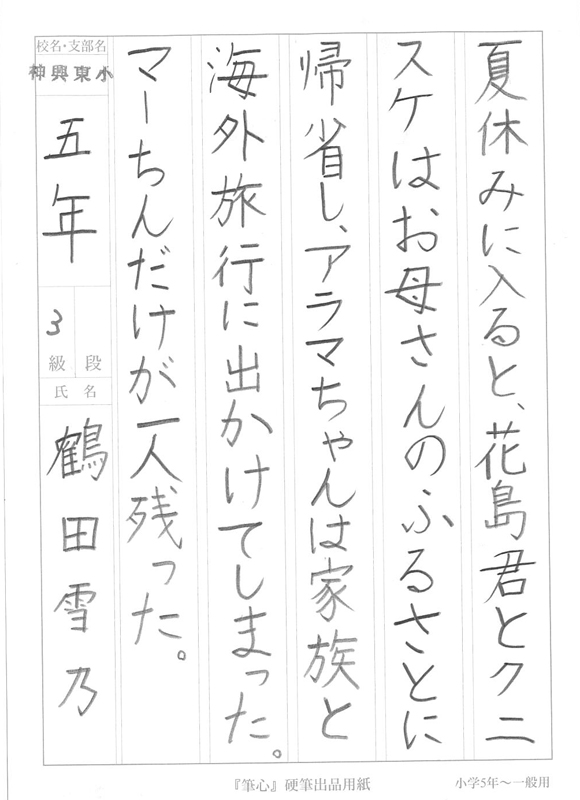 夏休みに入ると、花島君とクニ
スケはお母さんのふるさとに
帰省し、アラマちゃんは家族と
海外旅行に出かけてしまった。
マーちんだけが一人残った。
校名・支部名
神興東小
五年
3
級 段
氏 名
鶴田雪乃
『筆心』硬筆出品用紙
小学5年〜一般用